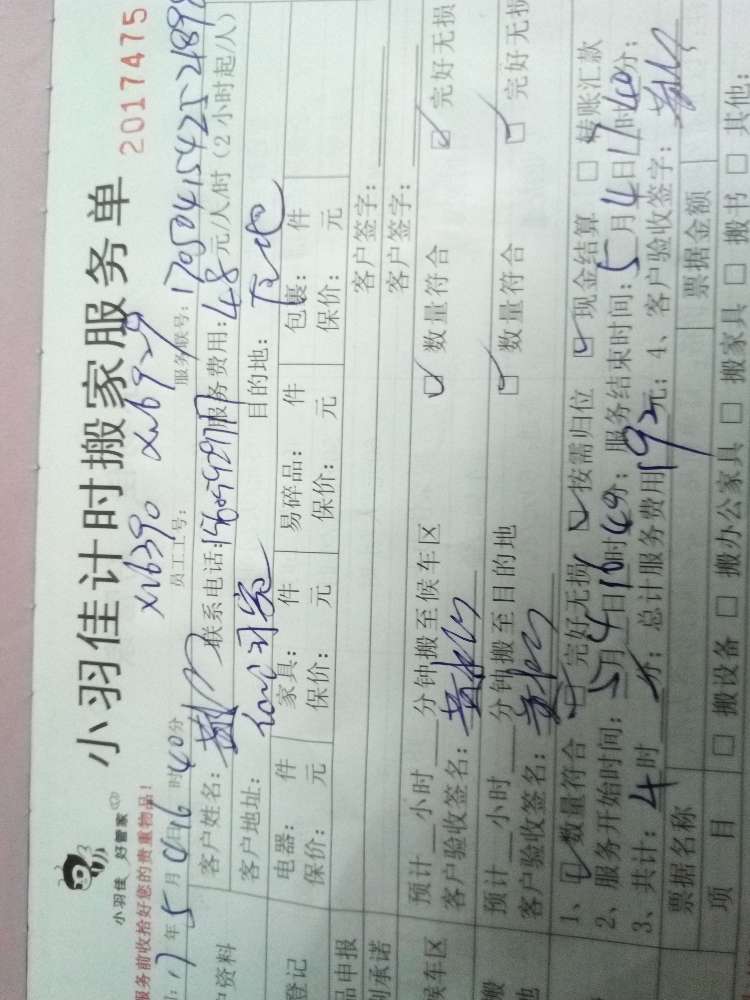 小羽佳计时搬家服务单
2017475
小羽佳 好管家
服务前收拾好您的贵重物品!
XYB390 XYB929
17年5月4日16时40分 员工工号: 服务联号: 170504154252189
客户姓名: 联系电话: 服务费用:48元/人/时(2小时起/人)
户资料
客户地址: 目的地:
电器: 件 家具: 件 易碎品: 件 包裹: 件
登记
保价: 元 保价: 元 保价: 元 保价: 元
品申报 客户签字:
别承诺 客户签字:
预计__小时__分钟搬至候车区 数量符合 完好无损
候车区
客户验收签名:
预计__小时__分钟搬至目的地 数量符合 完好无损
搬
地
客户验收签名:
1、数量符合 完好无损 按需归位 现金结算 转账汇款
2、服务开始时间:5月4日16时40分; 服务结束时间:5月4日17时40分;
3、共计:4时 分; 总计服务费用192元; 4、客户验收签字:
票据名称 票据金额
项目 搬设备 搬办公家具 搬家具 搬书 其他: